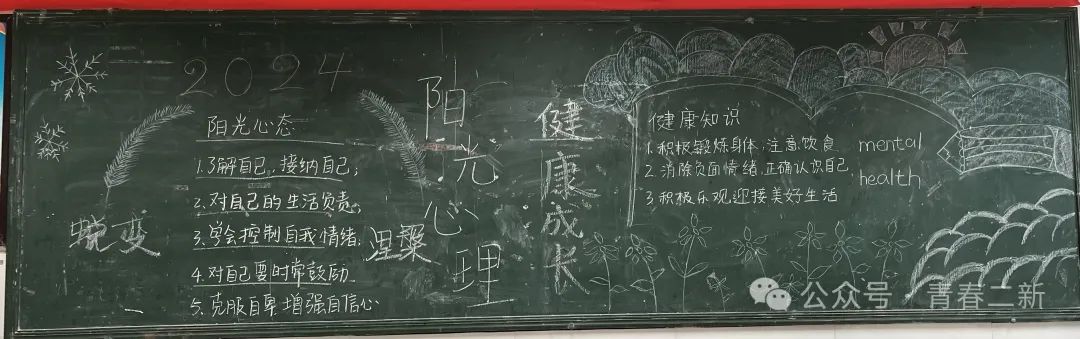 2024
阳光心态
1.了解自己,接纳自己;
2.对自己的生活负责;
3.学会控制自我情绪;
4.对自己要时常鼓励
5.克服自卑增强自信心
蜕变
阳光心理
健康成长
健康知识
1.积极锻炼身体,注意饮食
2.消除负面情绪,正确认识自己
3.积极乐观迎接美好生活
mental
health
公众号·青春二新